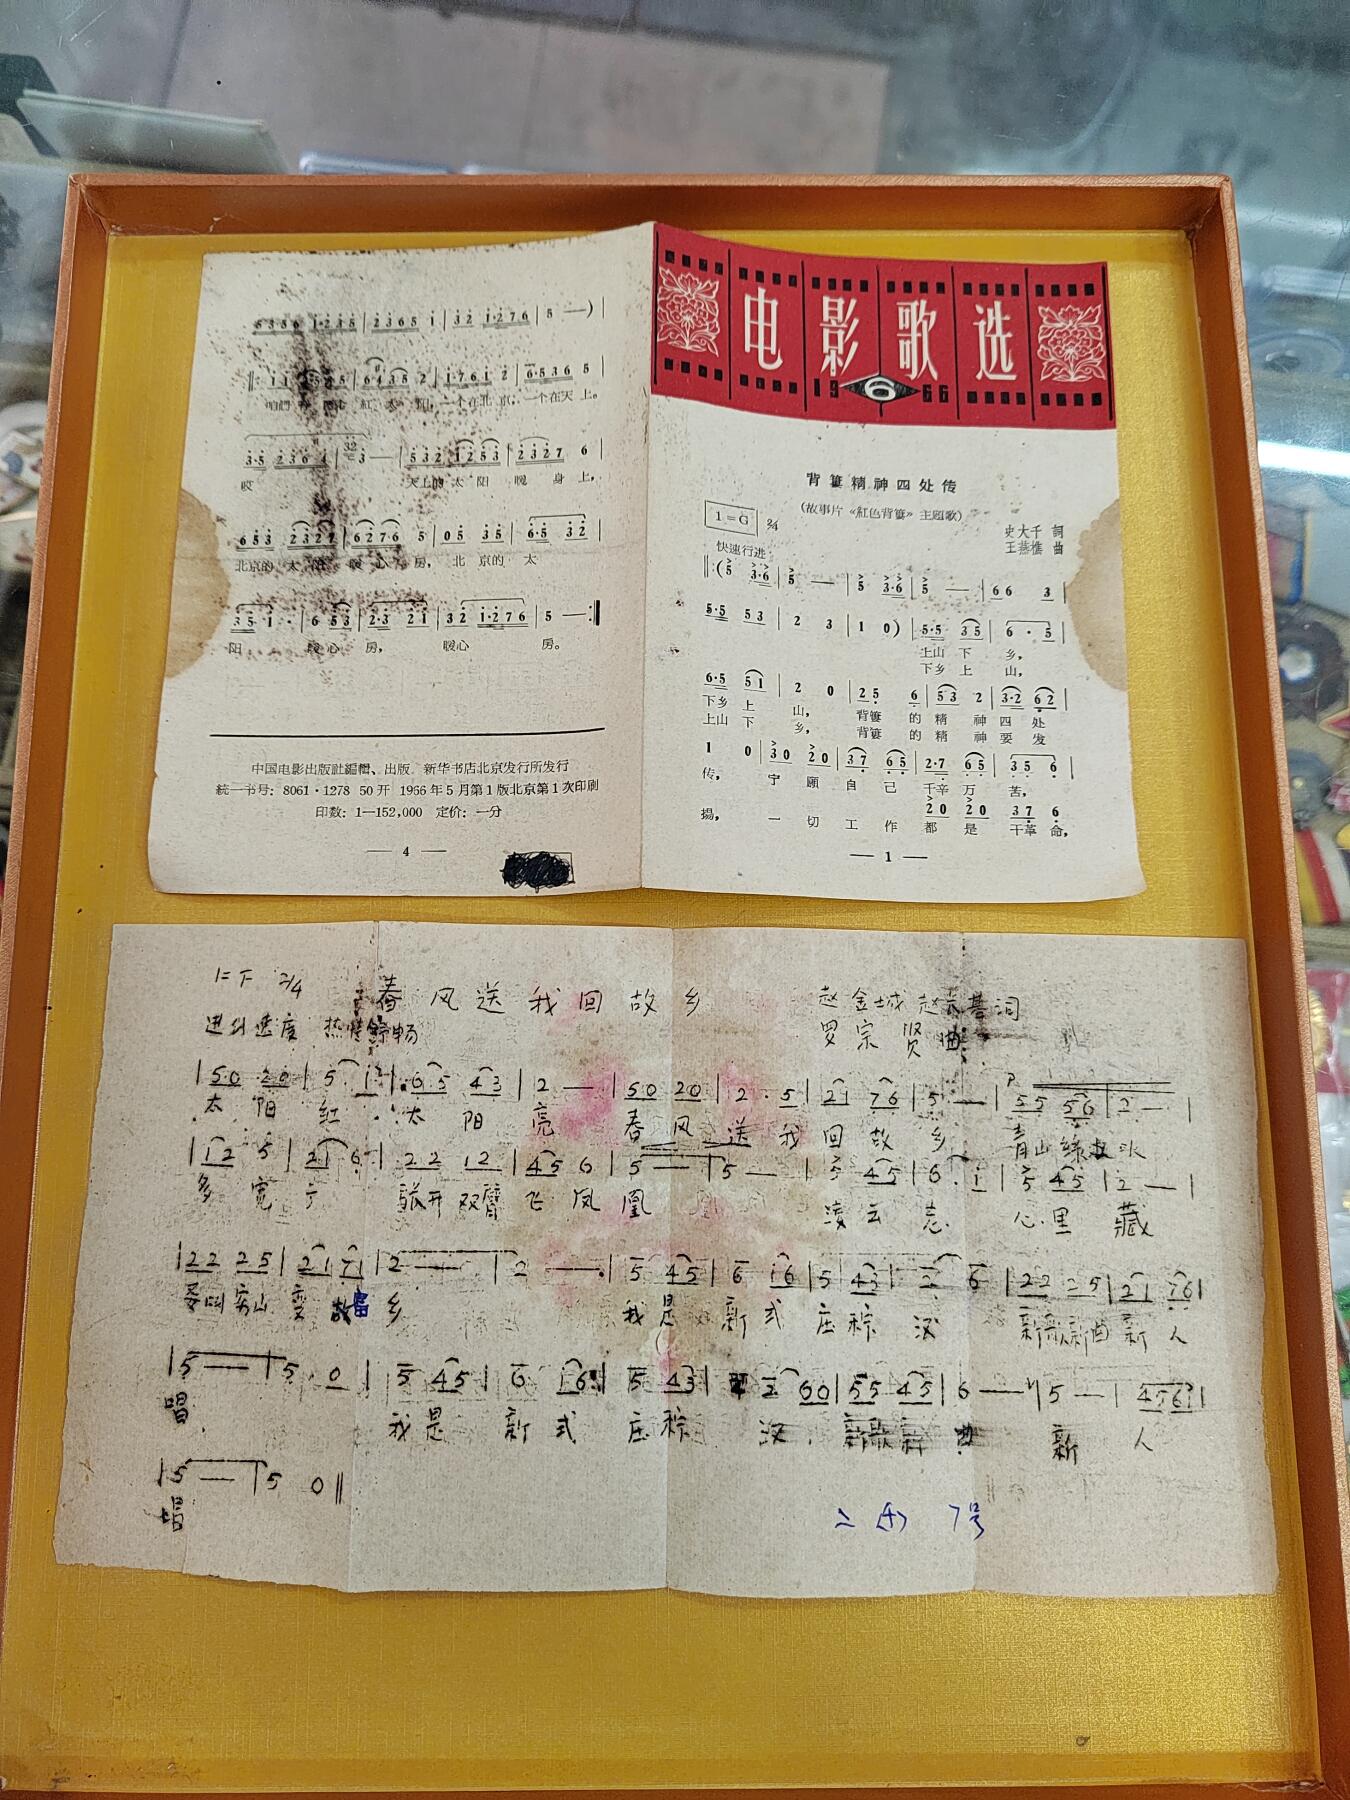 5356 1·235 | 2365 1 | 32 1·276 | 5 — )
紅太阳,一个在北京,一个在天上。
哎 天上的太阳暖身上,
653 2327 | 6276 5 | 05 35 | 6·5 32
北京的太阳暖心房,北京的太
35 1· | 6 53 | 2·3 21 | 32 1·276 | 5 — :‖
阳 暖心房, 暖心 房。
中国电影出版社編輯、出版 新华书店北京发行所发行
統一书号: 8061·1278 50开 1966年5月第1版北京第1次印刷
印数: 1—152,000 定价: 一分
— 4 —
电影歌选
1966
6
背篓精神四处传
(故事片《紅色背篓》主題歌)
1=G 2/4
史大千 詞
王燕樵 曲
快速行进
‖:(5 3·6 | 5 — | 5 3·6 | 5 — | 66 3 |
5·5 53 | 2 3 | 1 0) | 5·5 35 | 6 · 5 |
上山下乡,
下乡上山,
6·5 51 | 2 0 | 25 6 | 53 2 | 3·2 62 |
下乡上山, 背篓的精神四处
上山下乡, 背篓的精神要发
1 0 | 30 20 | 37 65 | 2·7 65 | 35 6 |
传, 宁願自己千辛万苦,
20 20 37 6
揚, 一切工作都是干革命,
— 1 —
2/4
春风送我回故乡
赵金城 词
进行速度 热情舒畅
罗宗贤 曲
|50 20 | 5 1 | 65 43 | 2 — | 50 20 | 2·5 | 21 76 | 5 — | 55 56 | 2 — |
太阳红 太阳亮 春风送我回故乡 青山绿水
多宽广 张开双臂飞凤凰 凌云志 心里藏
|22 25 | 21 71 | 2 — | 2 — | 5 45 | 6 16 | 5 43 | 2 6 | 22 25 | 21 76 |
变故乡 我是新式庄稼汉 新歌新曲新人
|5 — | 5 0 | 5 45 | 6 16 | 5 43 | 2 60 | 55 45 | 6 — | 5 — | 4561 |
唱 我是新式庄稼汉 新歌新曲新人
|5 — | 5 0 ‖
唱
7号